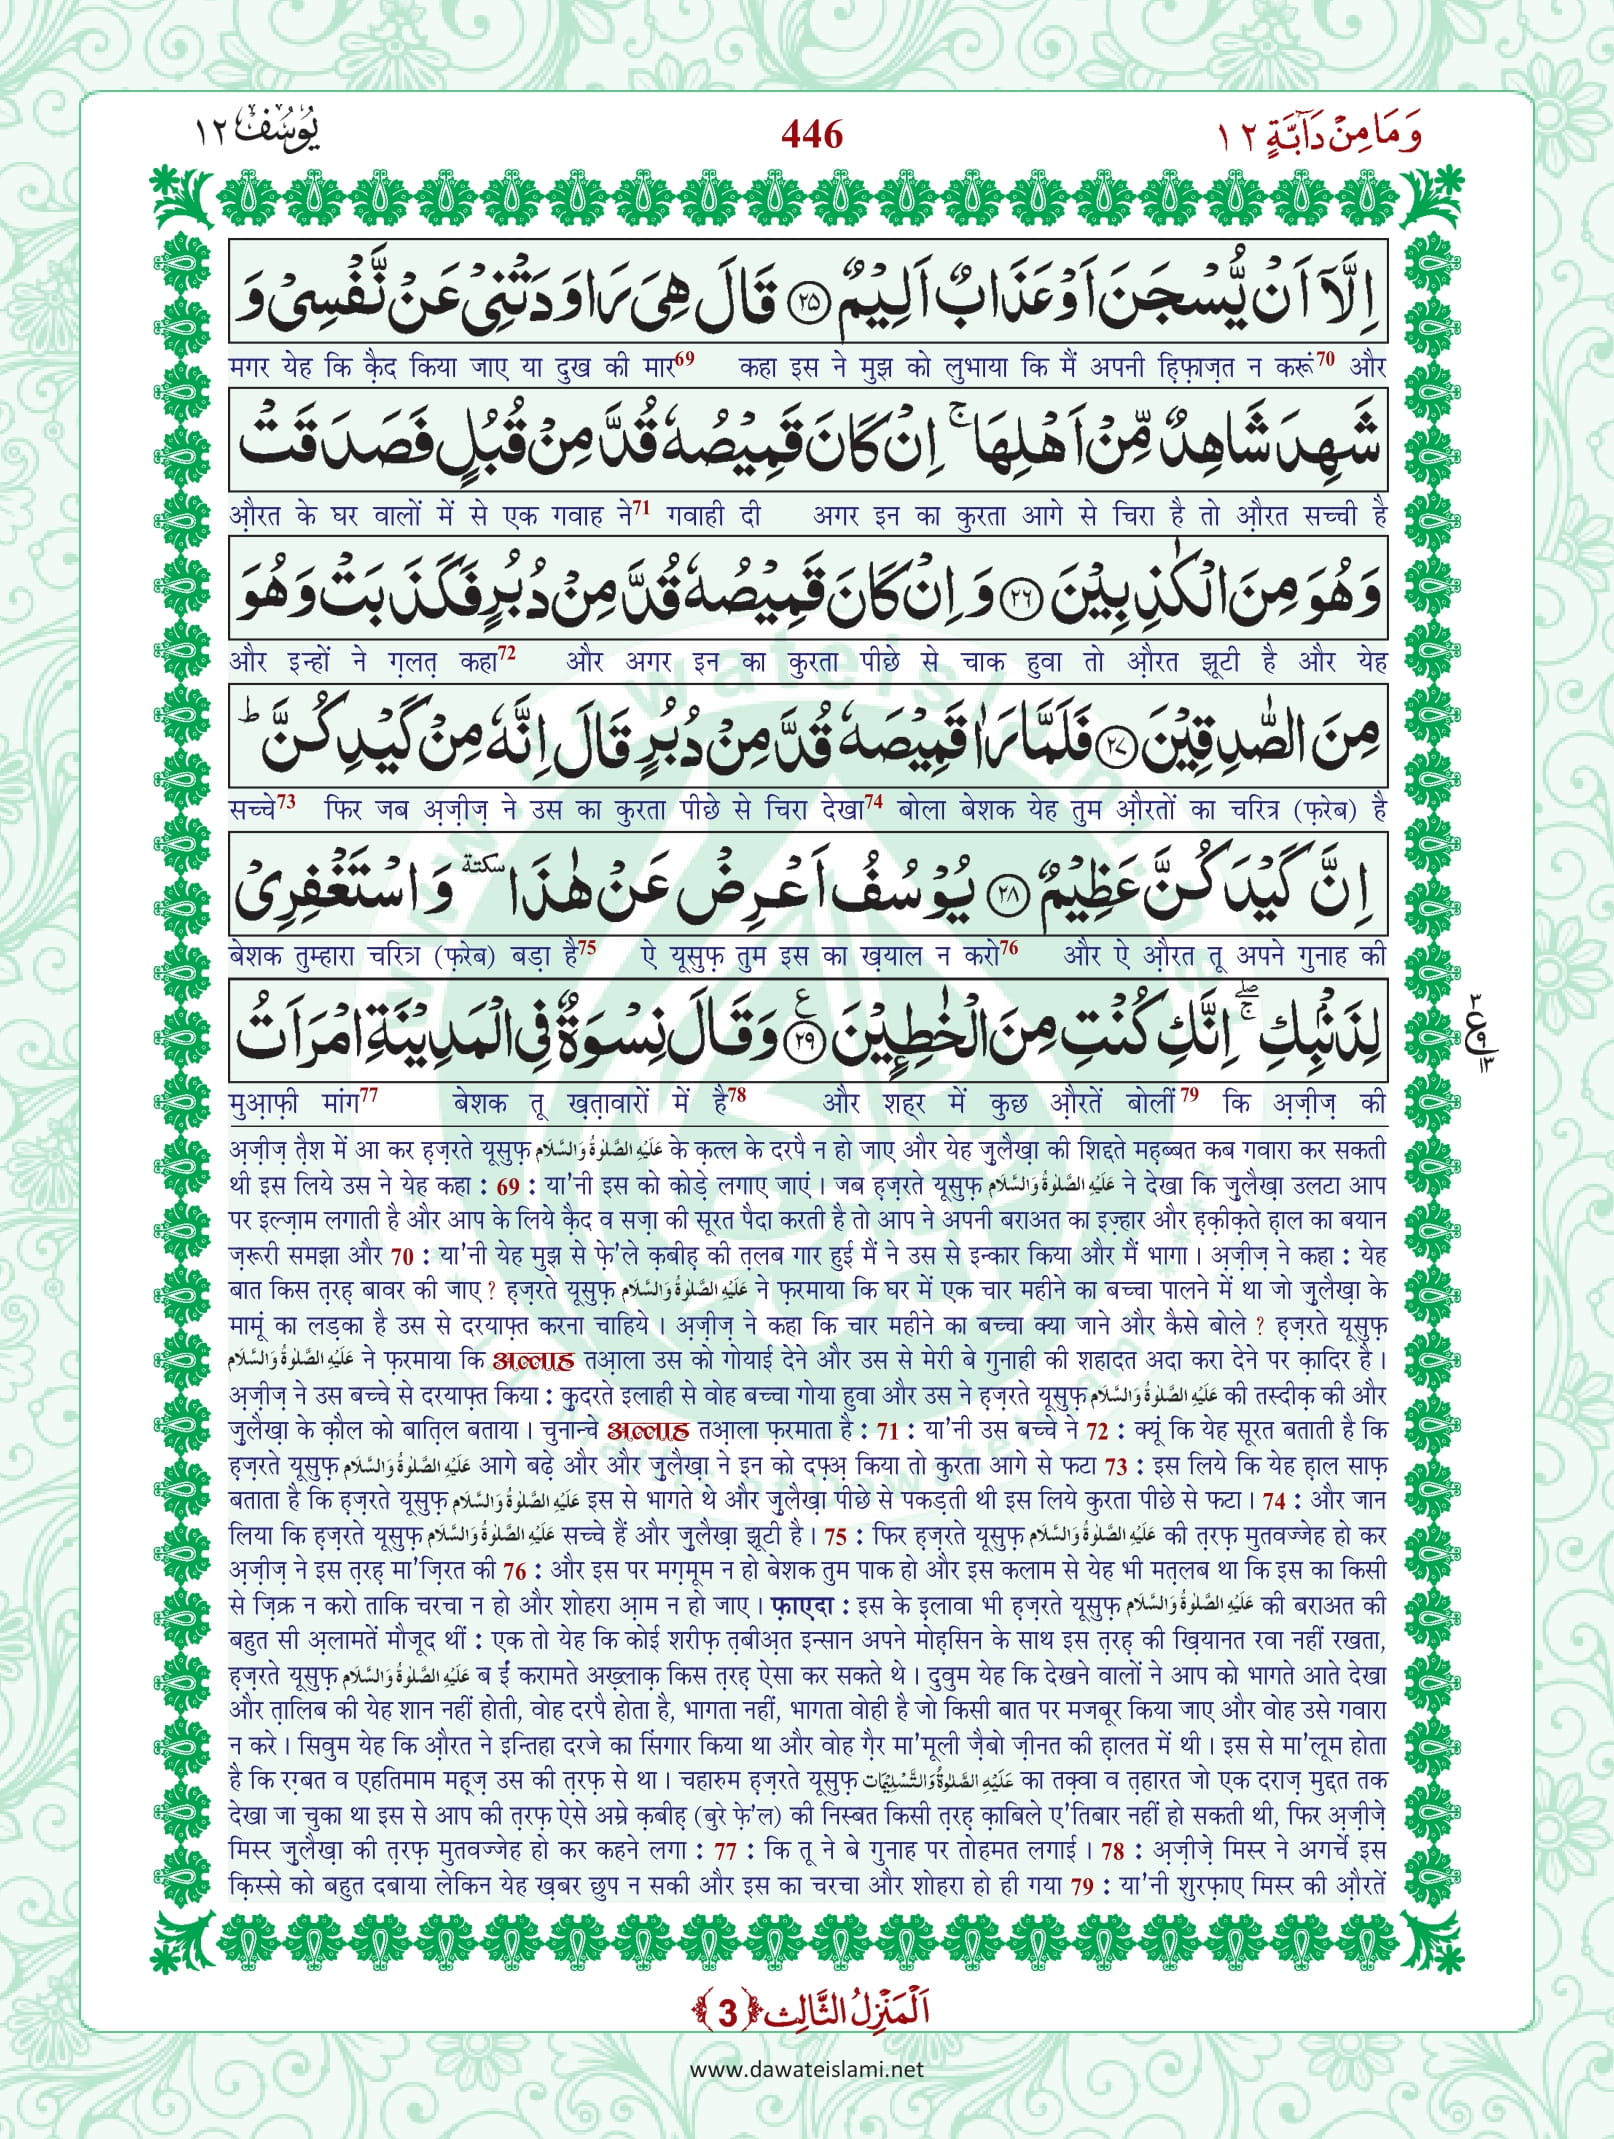 وَمَا مِنْ دَآبَّةٍ ١٢
446
يُوْسُف ١٢
اِلَّاۤ اَنْ یُّسْجَنَ اَوْ عَذَابٌ اَلِیْمٌ ﴿۲۵﴾ قَالَ هِیَ رَاوَدَتْنِیْ عَنْ نَّفْسِیْ وَ
मगर येह कि कै़द किया जाए या दुख की मार69 कहा इस ने मुझ को लुभाया कि मैं अपनी ह़िफ़ाज़त न करूं70 और
شَهِدَ شَاهِدٌ مِّنْ اَهْلِهَاۚ اِنْ كَانَ قَمِیْصُهٗ قُدَّ مِنْ قُبُلٍ فَصَدَقَتْ
औ़रत के घर वालों में से एक गवाह ने71 गवाही दी अगर इन का कुरता आगे से चिरा है तो औ़रत सच्ची है
وَ هُوَ مِنَ الْكٰذِبِیْنَ ﴿۲۶﴾ وَ اِنْ كَانَ قَمِیْصُهٗ قُدَّ مِنْ دُبُرٍ فَكَذَبَتْ وَ هُوَ
और इन्हों ने ग़लत़ कहा72 और अगर इन का कुरता पीछे से चाक हुवा तो औ़रत झूटी है और येह
مِنَ الصّٰدِقِیْنَ ﴿۲۷﴾ فَلَمَّا رَاٰ قَمِیْصَهٗ قُدَّ مِنْ دُبُرٍ قَالَ اِنَّهٗ مِنْ كَیْدِكُنَّؕ
सच्चे73 फिर जब अ़ज़ीज़ ने उस का कुरता पीछे से चिरा देखा74 बोला बेशक येह तुम औ़रतों का चरित्र (फ़रेब) है
اِنَّ كَیْدَكُنَّ عَظِیْمٌ ﴿۲۸﴾ یُوْسُفُ اَعْرِضْ عَنْ هٰذَاٚ سکتة وَ اسْتَغْفِرِیْ
बेशक तुम्हारा चरित्र (फ़रेब) बड़ा है75 ऐ यूसुफ़ तुम इस का ख़याल न करो76 और ऐ औ़रत तू अपने गुनाह की
لِذَنْۢبِكِ ۚۖ اِنَّكِ كُنْتِ مِنَ الْخٰطِـٕیْنَ ﴿۲۹﴾ ع وَ قَالَ نِسْوَةٌ فِی الْمَدِیْنَةِ امْرَاَتُ
٣ ع ٩ ١٣
मुआ़फ़ी मांग77 बेशक तू ख़त़ावारों में है78 और शहर में कुछ औ़रतें बोलीं79 कि अ़ज़ीज़ की
अ़ज़ीज़ त़ैश में आ कर ह़ज़रते यूसुफ़ عَلَيْهِ الصَّلٰوةُ وَالسَّلَام के क़त्ल के दरपै न हो जाए और येह ज़ुलैख़ा की शिद्दते मह़ब्बत कब गवारा कर सकती
थी इस लिये उस ने येह कहा : 69 : या'नी इस को कोड़े लगाए जाएं। जब ह़ज़रते यूसुफ़ عَلَيْهِ الصَّلٰوةُ وَالسَّلَام ने देखा कि ज़ुलैख़ा उलटा आप
पर इल्ज़ाम लगाती है और आप के लिये कै़द व सज़ा की सूरत पैदा करती है तो आप ने अपनी बराअत का इज़्हार और ह़क़ीक़ते ह़ाल का बयान
ज़रूरी समझा और 70 : या'नी येह मुझ से फे़'ले क़बीह़ की त़लब गार हुई मैं ने उस से इन्कार किया और मैं भागा। अ़ज़ीज़ ने कहा : येह
बात किस त़रह़ बावर की जाए ? ह़ज़रते यूसुफ़ عَلَيْهِ الصَّلٰوةُ وَالسَّلَام ने फ़रमाया कि घर में एक चार महीने का बच्चा पालने में था जो ज़ुलैख़ा के
मामूं का लड़का है उस से दरयाफ़्त करना चाहिये। अ़ज़ीज़ ने कहा कि चार महीने का बच्चा क्या जाने और कैसे बोले ? ह़ज़रते यूसुफ़
عَلَيْهِ الصَّلٰوةُ وَالسَّلَام ने फ़रमाया कि अल्लाह तआ़ला उस को गोयाई देने और उस से मेरी बे गुनाही की शहादत अदा करा देने पर क़ादिर है।
अ़ज़ीज़ ने उस बच्चे से दरयाफ़्त किया : कु़दरते इलाही से वोह बच्चा गोया हुवा और उस ने ह़ज़रते यूसुफ़ عَلَيْهِ الصَّلٰوةُ وَالسَّلَام की तस्दीक़ की और
ज़ुलैख़ा के क़ौल को बात़िल बताया। चुनान्चे अल्लाह तआला फ़रमाता है : 71 : या'नी उस बच्चे ने 72 : क्यूं कि येह सूरत बताती है कि
ह़ज़रते यूसुफ़ عَلَيْهِ الصَّلٰوةُ وَالسَّلَام आगे बढ़े और और ज़ुलैख़ा ने इन को दफ़्अ़ किया तो कुरता आगे से फटा 73 : इस लिये कि येह ह़ाल साफ़
बताता है कि ह़ज़रते यूसुफ़ عَلَيْهِ الصَّلٰوةُ وَالسَّلَام इस से भागते थे और ज़ुलैख़ा पीछे से पकड़ती थी इस लिये कुरता पीछे से फटा। 74 : और जान
लिया कि ह़ज़रते यूसुफ़ عَلَيْهِ الصَّلٰوةُ وَالسَّلَام सच्चे हैं और ज़ुलैख़ा झूटी है। 75 : फिर ह़ज़रते यूसुफ़ عَلَيْهِ الصَّلٰوةُ وَالسَّلَام की त़रफ़ मुतवज्जेह हो कर
अ़ज़ीज़ ने इस त़रह़ मा'ज़िरत की 76 : और इस पर मग़मूम न हो बेशक तुम पाक हो और इस कलाम से येह भी मत़लब था कि इस का किसी
से ज़िक्र न करो ताकि चरचा न हो और शोहरा आ़म न हो जाए। फ़ाएदा : इस के इ़लावा भी ह़ज़रते यूसुफ़ عَلَيْهِ الصَّلٰوةُ وَالسَّلَام की बराअत की
बहुत सी अ़लामतें मौजूद थीं : एक तो येह कि कोई शरीफ़ त़बीअ़त इन्सान अपने मोह़सिन के साथ इस त़रह़ की ख़ियानत रवा नहीं रखता,
ह़ज़रते यूसुफ़ عَلَيْهِ الصَّلٰوةُ وَالسَّلَام ब ईं करामते अख़्लाक़ किस त़रह़ ऐसा कर सकते थे। दुवुम येह कि देखने वालों ने आप को भागते आते देखा
और त़ालिब की येह शान नहीं होती, वोह दरपै होता है, भागता नहीं, भागता वोही है जो किसी बात पर मजबूर किया जाए और वोह उसे गवारा
न करे। सिवुम येह कि औ़रत ने इन्तिहा दरजे का सिंगार किया था और वोह ग़ैर मा'मूली ज़ैबो ज़ीनत की ह़ालत में थी। इस से मा'लूम होता
है कि रग़्बत व एहतिमाम मह़्ज़ उस की त़रफ़ से था। चहारुम ह़ज़रते यूसुफ़ عَلَيْهِ الصَّلٰوةُ وَالتَّسْلِيْمَات का तक़्वा व त़हारत जो एक दराज़ मुद्दत तक
देखा जा चुका था इस से आप की त़रफ़ ऐसे अम्रे क़बीह़ (बुरे फे़'ल) की निस्बत किसी त़रह़ क़ाबिले ए'तिबार नहीं हो सकती थी, फिर अ़ज़ीज़े
मिस्र ज़ुलैख़ा की त़रफ़ मुतवज्जेह हो कर कहने लगा : 77 : कि तू ने बे गुनाह पर तोहमत लगाई। 78 : अ़ज़ीज़े मिस्र ने अगर्चे इस
क़िस्से को बहुत दबाया लेकिन येह ख़बर छुप न सकी और इस का चरचा और शोहरा हो ही गया 79 : या'नी शुरफ़ाए मिस्र की औ़रतें
اَلْمَنْزِلُ الثَّالِث ﴿3﴾
www.dawateislami.net